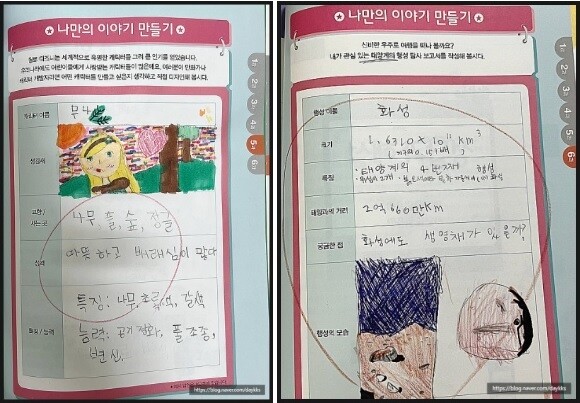 나만의 이야기 만들기
월트 디즈니는 세계적으로 유명한 캐릭터를 그려 큰 인기를 얻었습니다.
우리나라에도 어린이들에게 사랑받는 캐릭터들이 많은데요. 여러분이 만화가나
캐릭터 개발자라면 어떤 캐릭터를 만들고 싶은지 생각하고 직접 디자인해 봅시다.
캐릭터 이름
생김새
고향 /
사는 곳
나무, 풀, 숲, 정글
성격
따뜻하고 배려심이 많다
특징 / 능력
특징: 나무, 초록색, 갈색
능력: 공기 정화, 풀 조종,
변신.
1과
2과
3과
4과
5과
6과
https://blog.naver.com/daykhs
나만의 이야기 만들기
신비한 우주로 여행을 떠나 볼까요?
내가 관심 있는 태양계의 행성 탐사 보고서를 작성해 봅시다.
행성 이름
화성
크기
1.6310 x 10¹¹ km³
(지구의 0.151배)
특징
태양계의 4번째 행성
태양과의 거리
2억 860만km
궁금한 점
화성에도 생명체가 있을까?
행성의 모습
1과
2과
3과
4과
5과
6과
https://blog.naver.com/daykhs